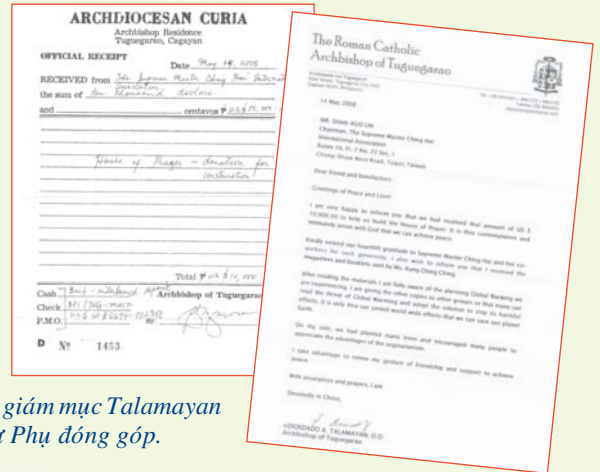 ARCHDIOCESAN CURIA
Archbishop Residence
Tuguegarao, Cagayan
OFFICIAL RECEIPT
Date May 14, 2008
RECEIVED from The Supreme Master Ching Hai Internat
Association
the sum of ten thousand dollars
and centavos ₱ US$10,000.
House of Prayer – donation for
construction
Total ₱ US $10,000
Cash
Check BPI/TUG-main
P.M.O.
by:
Archbishop of Tuguegarao
D Nº 1453
The Roman Catholic
Archbishop of Tuguegarao
14 May 2008
MR. SHAN-KUO LIN
Chairman, The Supreme Master Ching Hai
International Association
Room 16, Fl. 7 No. 72 Sec. 1
Chung Shiao West Road, Taipei, Taiwan
Dear friend and benefactors:
Greetings of Peace and Love!
I am very happy to inform you that we had received that amount of US $
10,000.00 to help us build the House of Prayer. It is thru contemplation and
intimately union with God that we can achieve peace.
Kindly extend our heartfelt gratitude to Supreme Master Ching Hai and her co-
workers for such generosity. I also wish to inform you that I received the
magazines and booklets sent by Ms. Kung Ching Ching.
After reading the materials I am fully aware of the alarming Global Warming we
are experiencing. I am giving the other copies to other groups so that many can
read the threat of Global Warming and adopt the solution to stop its harmful
effects. It is only thru our united world wide efforts that we can save our planet
Earth.
On my side, we had planted many trees and encouraged many people to
appreciate the advantages of the vegetarianism.
I take advantage to renew my gesture of friendship and support to achieve
peace.
With assurances and prayers, I am
Devotedly in Christ,
+DIOSDADO A. TALAMAYAN, D.D.
Archbishop of Tuguegarao
giám mục Talamayan
Phụ đóng góp.